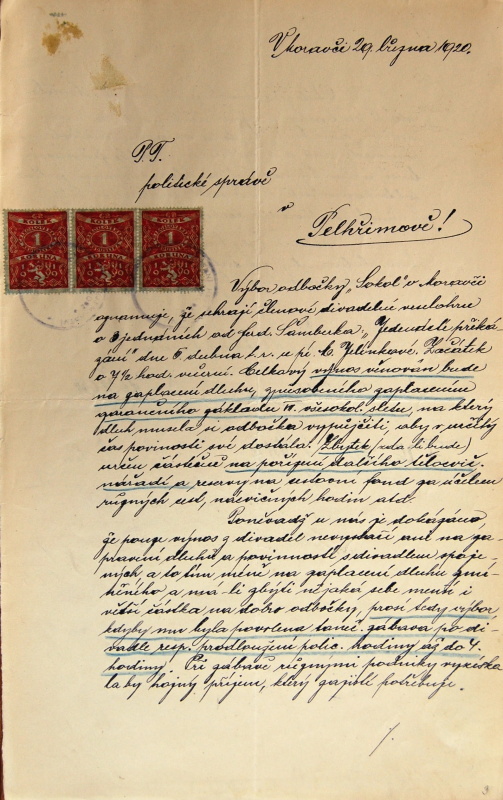 V Moravči 29. března 1920.
P. T.
politické správě
v
Pelhřimově!
KOLEK
1
KORUNA
KOLEK
1
KORUNA
KOLEK
1
KORUNA
Výbor odbočky „Sokol" v Moravči
oznamuje, že sehrají členové divadelní veselohru
o 3 jednáních od Ferd. Šamberka „Jedenácté přiká-
zání" dne 5 dubna t. r. u pí. Jelínkové. Začátek
o 7½ hod. večerní. Celkový výnos věnován bude
na zaplacení dluhu, způsobeného zaplacením
garančního základu VII. všesokol. sletu, na který
dluh musela si odbočka vypůjčiti, aby v určitý
čas povinosti své dostála. Zbytek (zda-li bude)
určen částečně na pořízení dalšího tělocvič.
nářadí a reservy na cestovní fond za účelem
různých cest, nacvičných hodin atd.
Poněvadž u nás je dokázáno,
že pouze výnos z divadel nevynáší ani na za-
pravení dluhů a povinností s divadlem spoje-
ných, a to tím méně na zaplacení dluhu zmí-
něného a má-li zbýti nějaká sebe menší i
větší částka na dobro odbočky, prosí tedy výbor
kdyby mu byla povolena taneč. zábava po di-
vadle resp. prodloužení polic. hodiny až do 4.
hodiny. Při zábavě různými podniky vyzíska-
la by hojný příjem, který zajisté potřebuje.